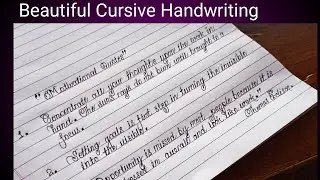 Beautiful Cursive Handwriting
"Motivational Quotes"
1. Concentrate all your thoughts upon the work in
hand. The suns rays do not burn until brought to a
focus.
2. Setting goals is first step in turning the invisible
into the visible.
Opportunity is missed by most people because it is
dressed in overalls and look like work."
Thomas Edison.